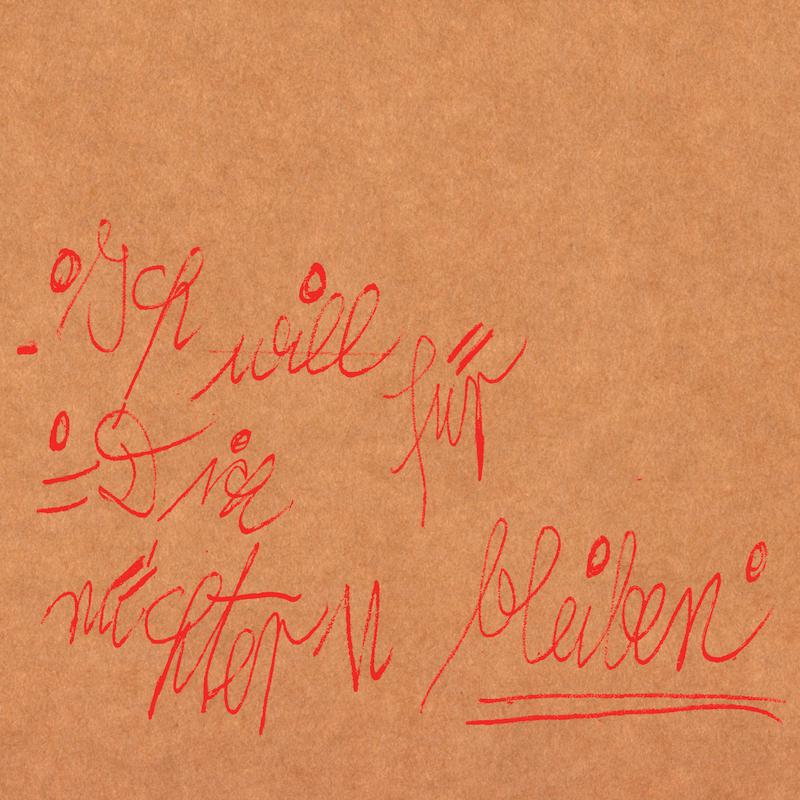 Ich will für
Dich
nüchtern bleiben